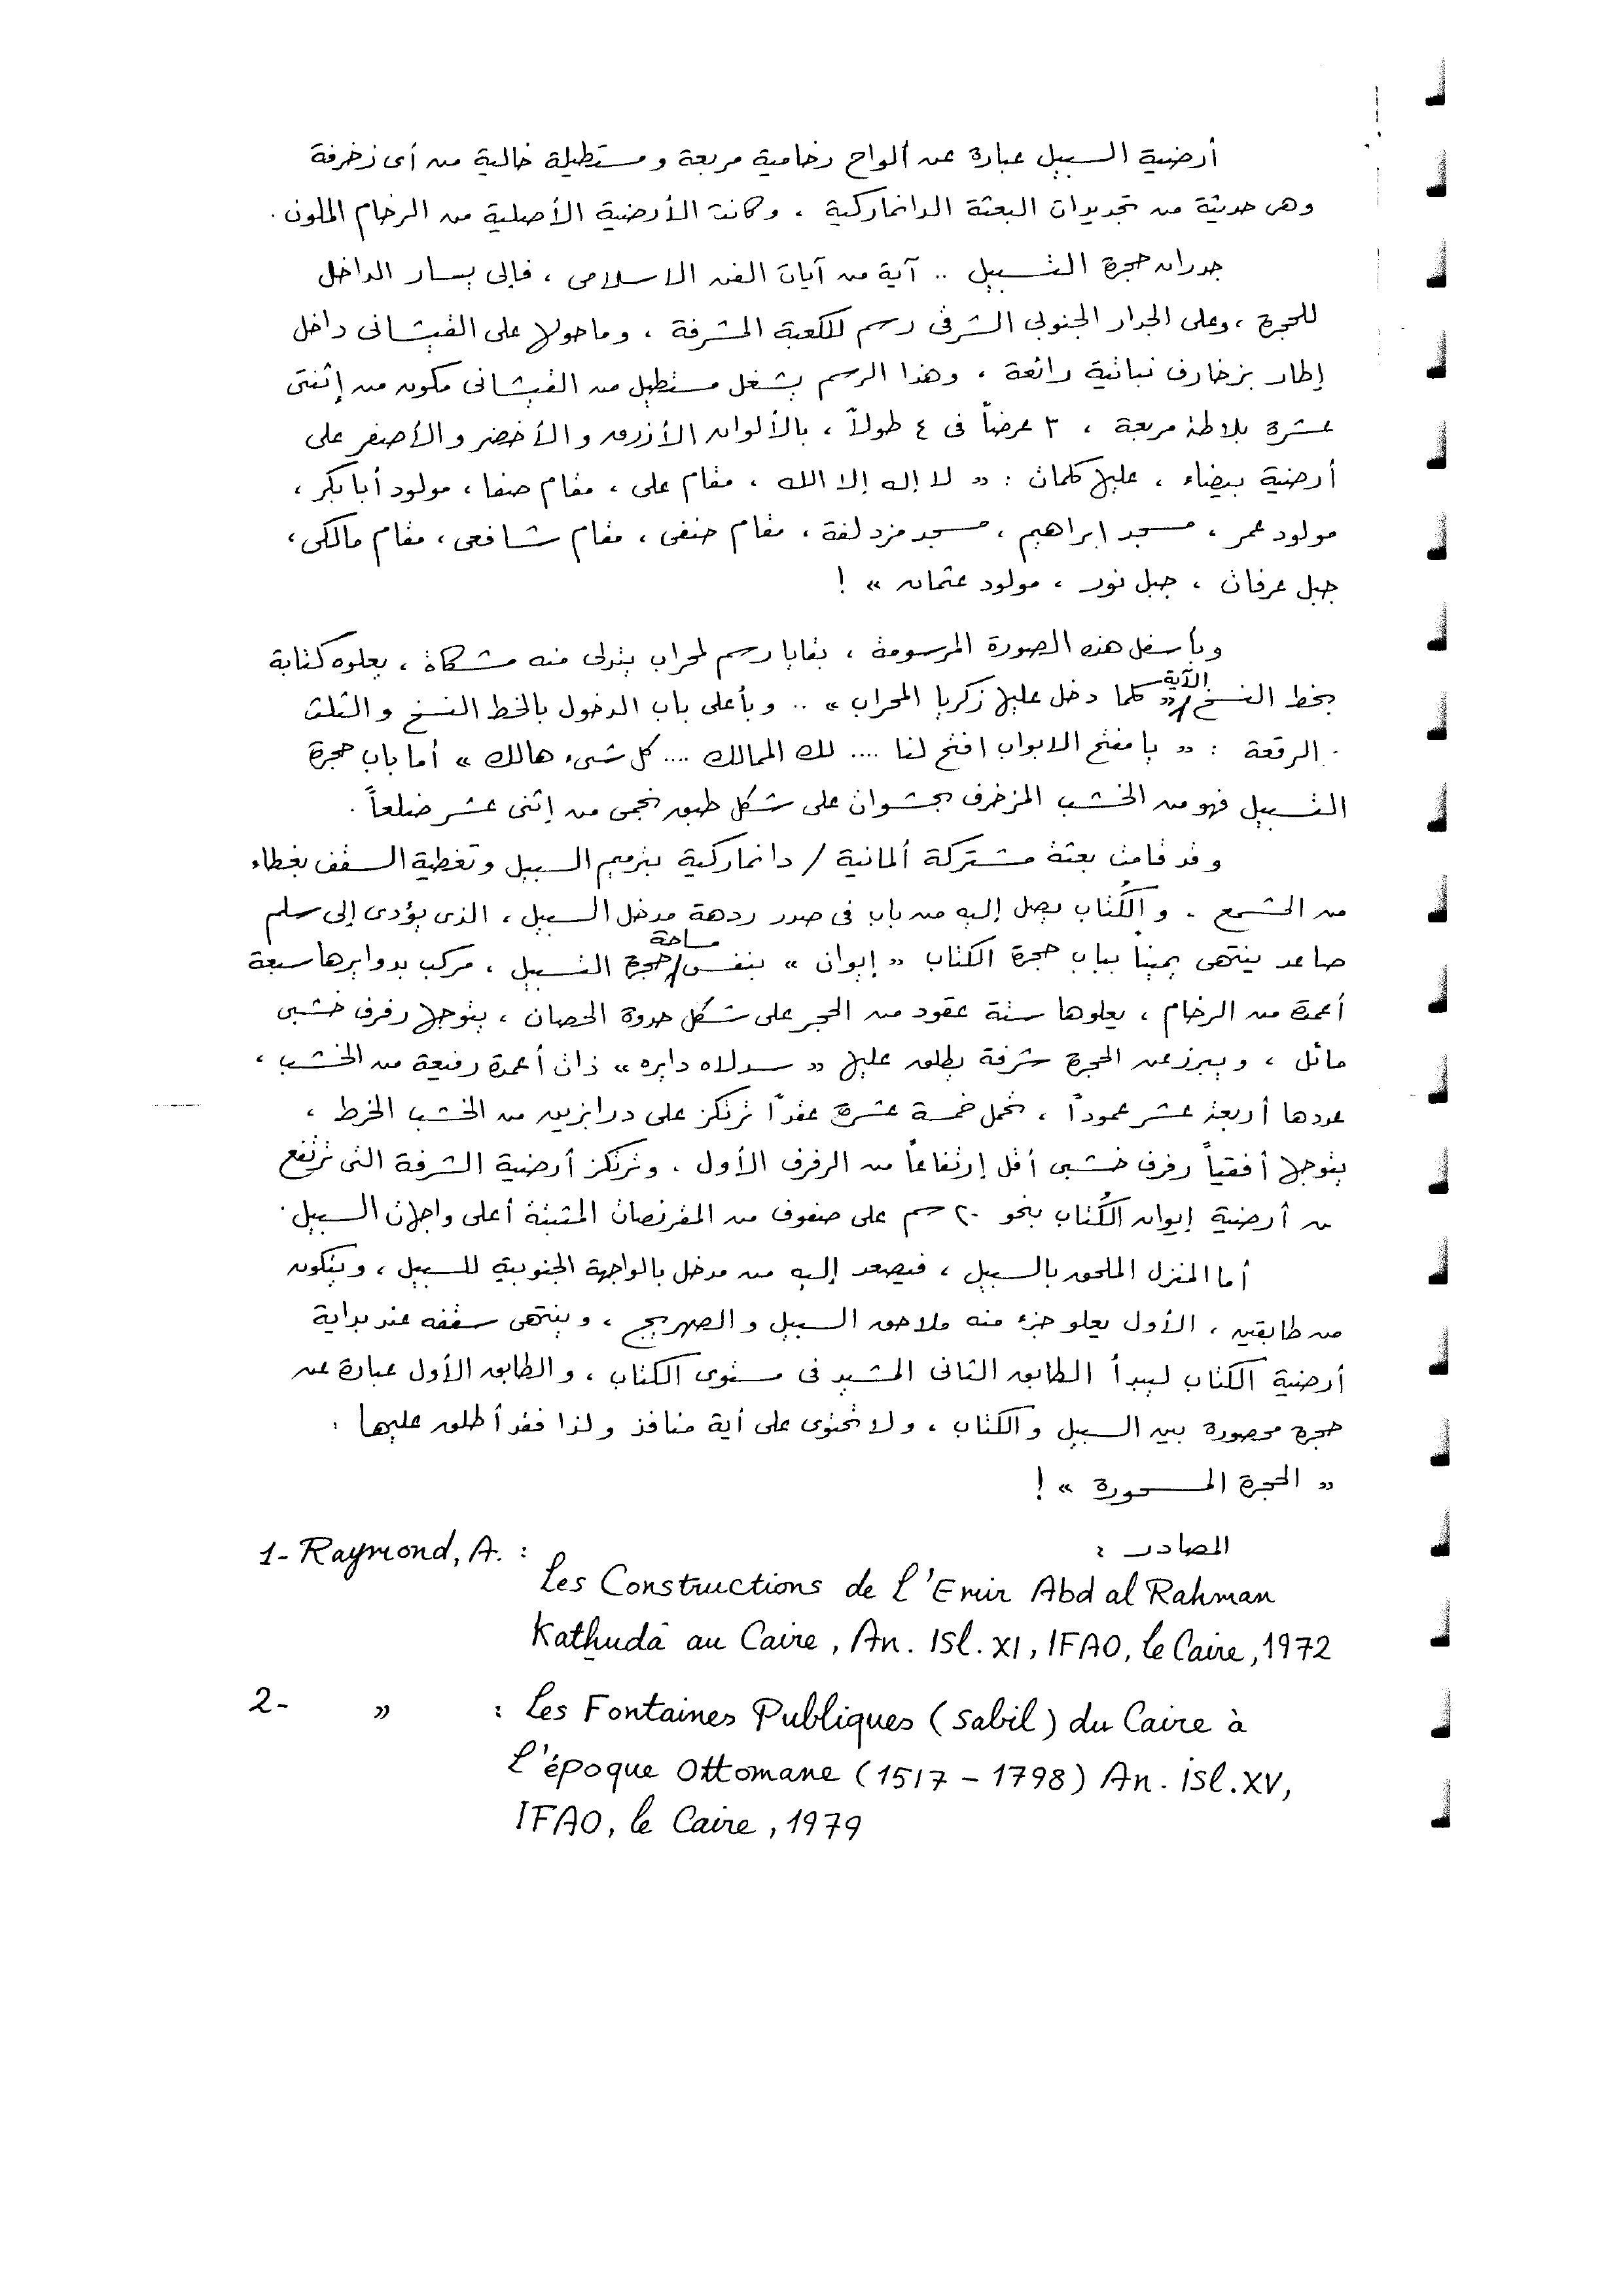 أرضية السبيل عبارة عن ألواح رخامية مربعة ومستطيلة خالية من أى زخرفة
وهى حديثة من تجديدات البعثة الدانماركية ، وكانت الأرضية الأصلية من الرخام الملون .
جدران حجرة التسبيل .. آية من آيات الفن الاسلامى ، فإلى يسار الداخل
للحجرة ، وعلى الجدار الجنوبى الشرقى رسم للكعبة المشرفة ، وما حولها على القيشانى داخل
إطار بزخارف نباتية رائعة ، وهذا الرسم يشغل مستطيل من القيشانى مكون من إثنتى
عشرة بلاطة مربعة ، ٣ عرضاً فى ٤ طولاً ، بالألوان الأزرق والأخضر والأصفر على
أرضية بيضاء ، عليها كلمات : « لا إله إلا الله ، مقام على ، مقام صفا ، مولود أبا بكر ،
مولود عمر ، مسجد ابراهيم ، مسجد مزدلفة ، مقام حنفى ، مقام شافعى ، مقام مالكى ،
جبل عرفات ، جبل نور ، مولود عثمان » !
وبأسفل هذه الصورة المرسومة ، بقايا رسم لمحراب يتدلى منه مشكاة ، يعلوه كتابة
بخط النسخ / الآية « كلما دخل عليها زكريا المحراب » .. وبأعلى باب الدخول بالخط النسخ والثلث
. الرقعة : « يا مفتح الابواب افتح لنا .... لك الممالك .... كل شىء هالك » أما باب حجرة
التسبيل فهو من الخشب المزخرف بحشوات على شكل طبق نجمى من إثنى عشر ضلعاً .
وقد قامت بعثة مشتركة ألمانية / دانماركية بترميم السبيل وتغطية السقف بغطاء
من المشمع . والكُتاب يصل إليه من باب فى صدر ردهة مدخل السبيل ، الذى يؤدى إلى سلم
صاعد ينتهى يميناً بباب حجرة الكتاب « إيوان » بنفس / مساحة حجرة التسبيل ، مركب بدوايرها سبعة
أعمدة من الرخام ، يعلوها ستة عقود من الحجر على شكل حدوة الحصان ، يتوجها رفرف خشبى
مائل ، ويبرز عن الحجرة شرفة يطلق عليها « سدلاه دايره » ذات أعمدة رفيعة من الخشب ،
عددها أربعة عشر عموداً ، تحمل خمسة عشرة عقدًا ترتكز على درابزين من الخشب الخرط ،
يتوجها أفقياً رفرف خشبى أقل إرتفاعاً من الرفرف الأول . وترتكز أرضية الشرفة التى ترتفع
من أرضية إيوان الكُتاب بنحو ٢٠ سم على صفوف من المقرنصات المثبتة أعلى واجهات السبيل .
أما المنزل الملحق بالسبيل ، فيصعد إليه من مدخل بالواجهة الجنوبية للسبيل ، ويتكون
من طابقين ، الأول يعلو جزء منه ملاحق السبيل والصهريج ، وينتهى سقفه عند بداية
أرضية الكتاب ليبدأ الطابق الثانى المشيد فى مستوى الكتاب ، والطابق الأول عبارة عن
حجرة محصورة بين السبيل والكتاب ، ولا تحتوى على أية منافذ ولذا فقد أطلق عليها :
« الحجرة المسحورة » !
المصادر :
1- Raymond, A. :
Les Constructions de l'Emir Abd al Rahman
Kathudâ au Caire, An. ISl. XI, IFAO, le Caire, 1972
2- » : Les Fontaines Publiques (Sabil) du Caire à
l'époque Ottomane (1517 - 1798) An. iSl. XV,
IFAO, le Caire, 1979